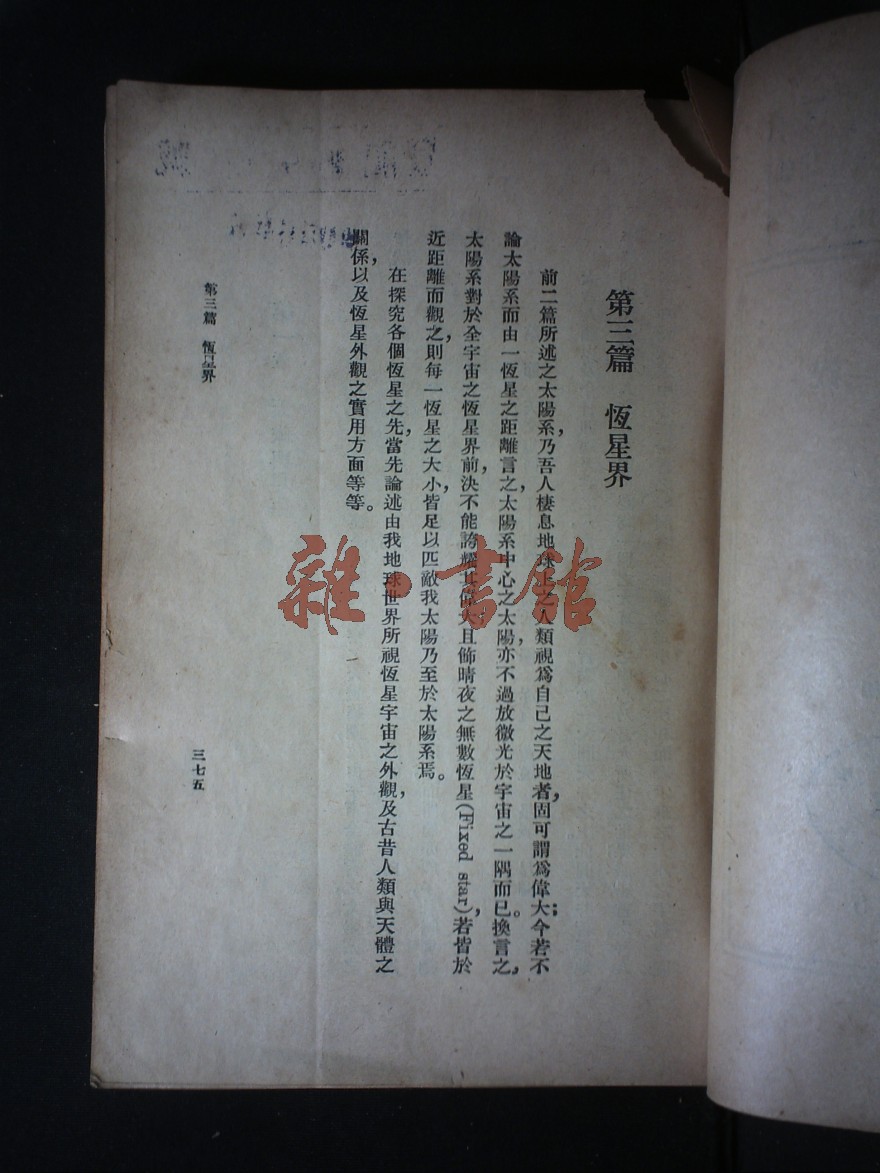 第三篇 恆星界
前二篇所述之太陽系，乃吾人棲息地球上之人類視爲自己之天地者，固可謂爲偉大；今若不
論太陽系而由一恆星之距離言之，太陽系中心之太陽，亦不過放微光於宇宙之一隅而已。換言之，
太陽系對於全宇宙之恆星界前，決不能誇耀其偉大。且飾晴夜之無數恆星（Fixed star），若皆於
近距離而觀之，則每一恆星之大小，皆足以匹敵我太陽乃至於太陽系焉。
在探究各個恆星之先，當先論述由我地球世界所視恆星宇宙之外觀，及古昔人類與天體之
關係，以及恆星外觀之實用方面等等。
第三篇 恆星界
三七五
雜·書館